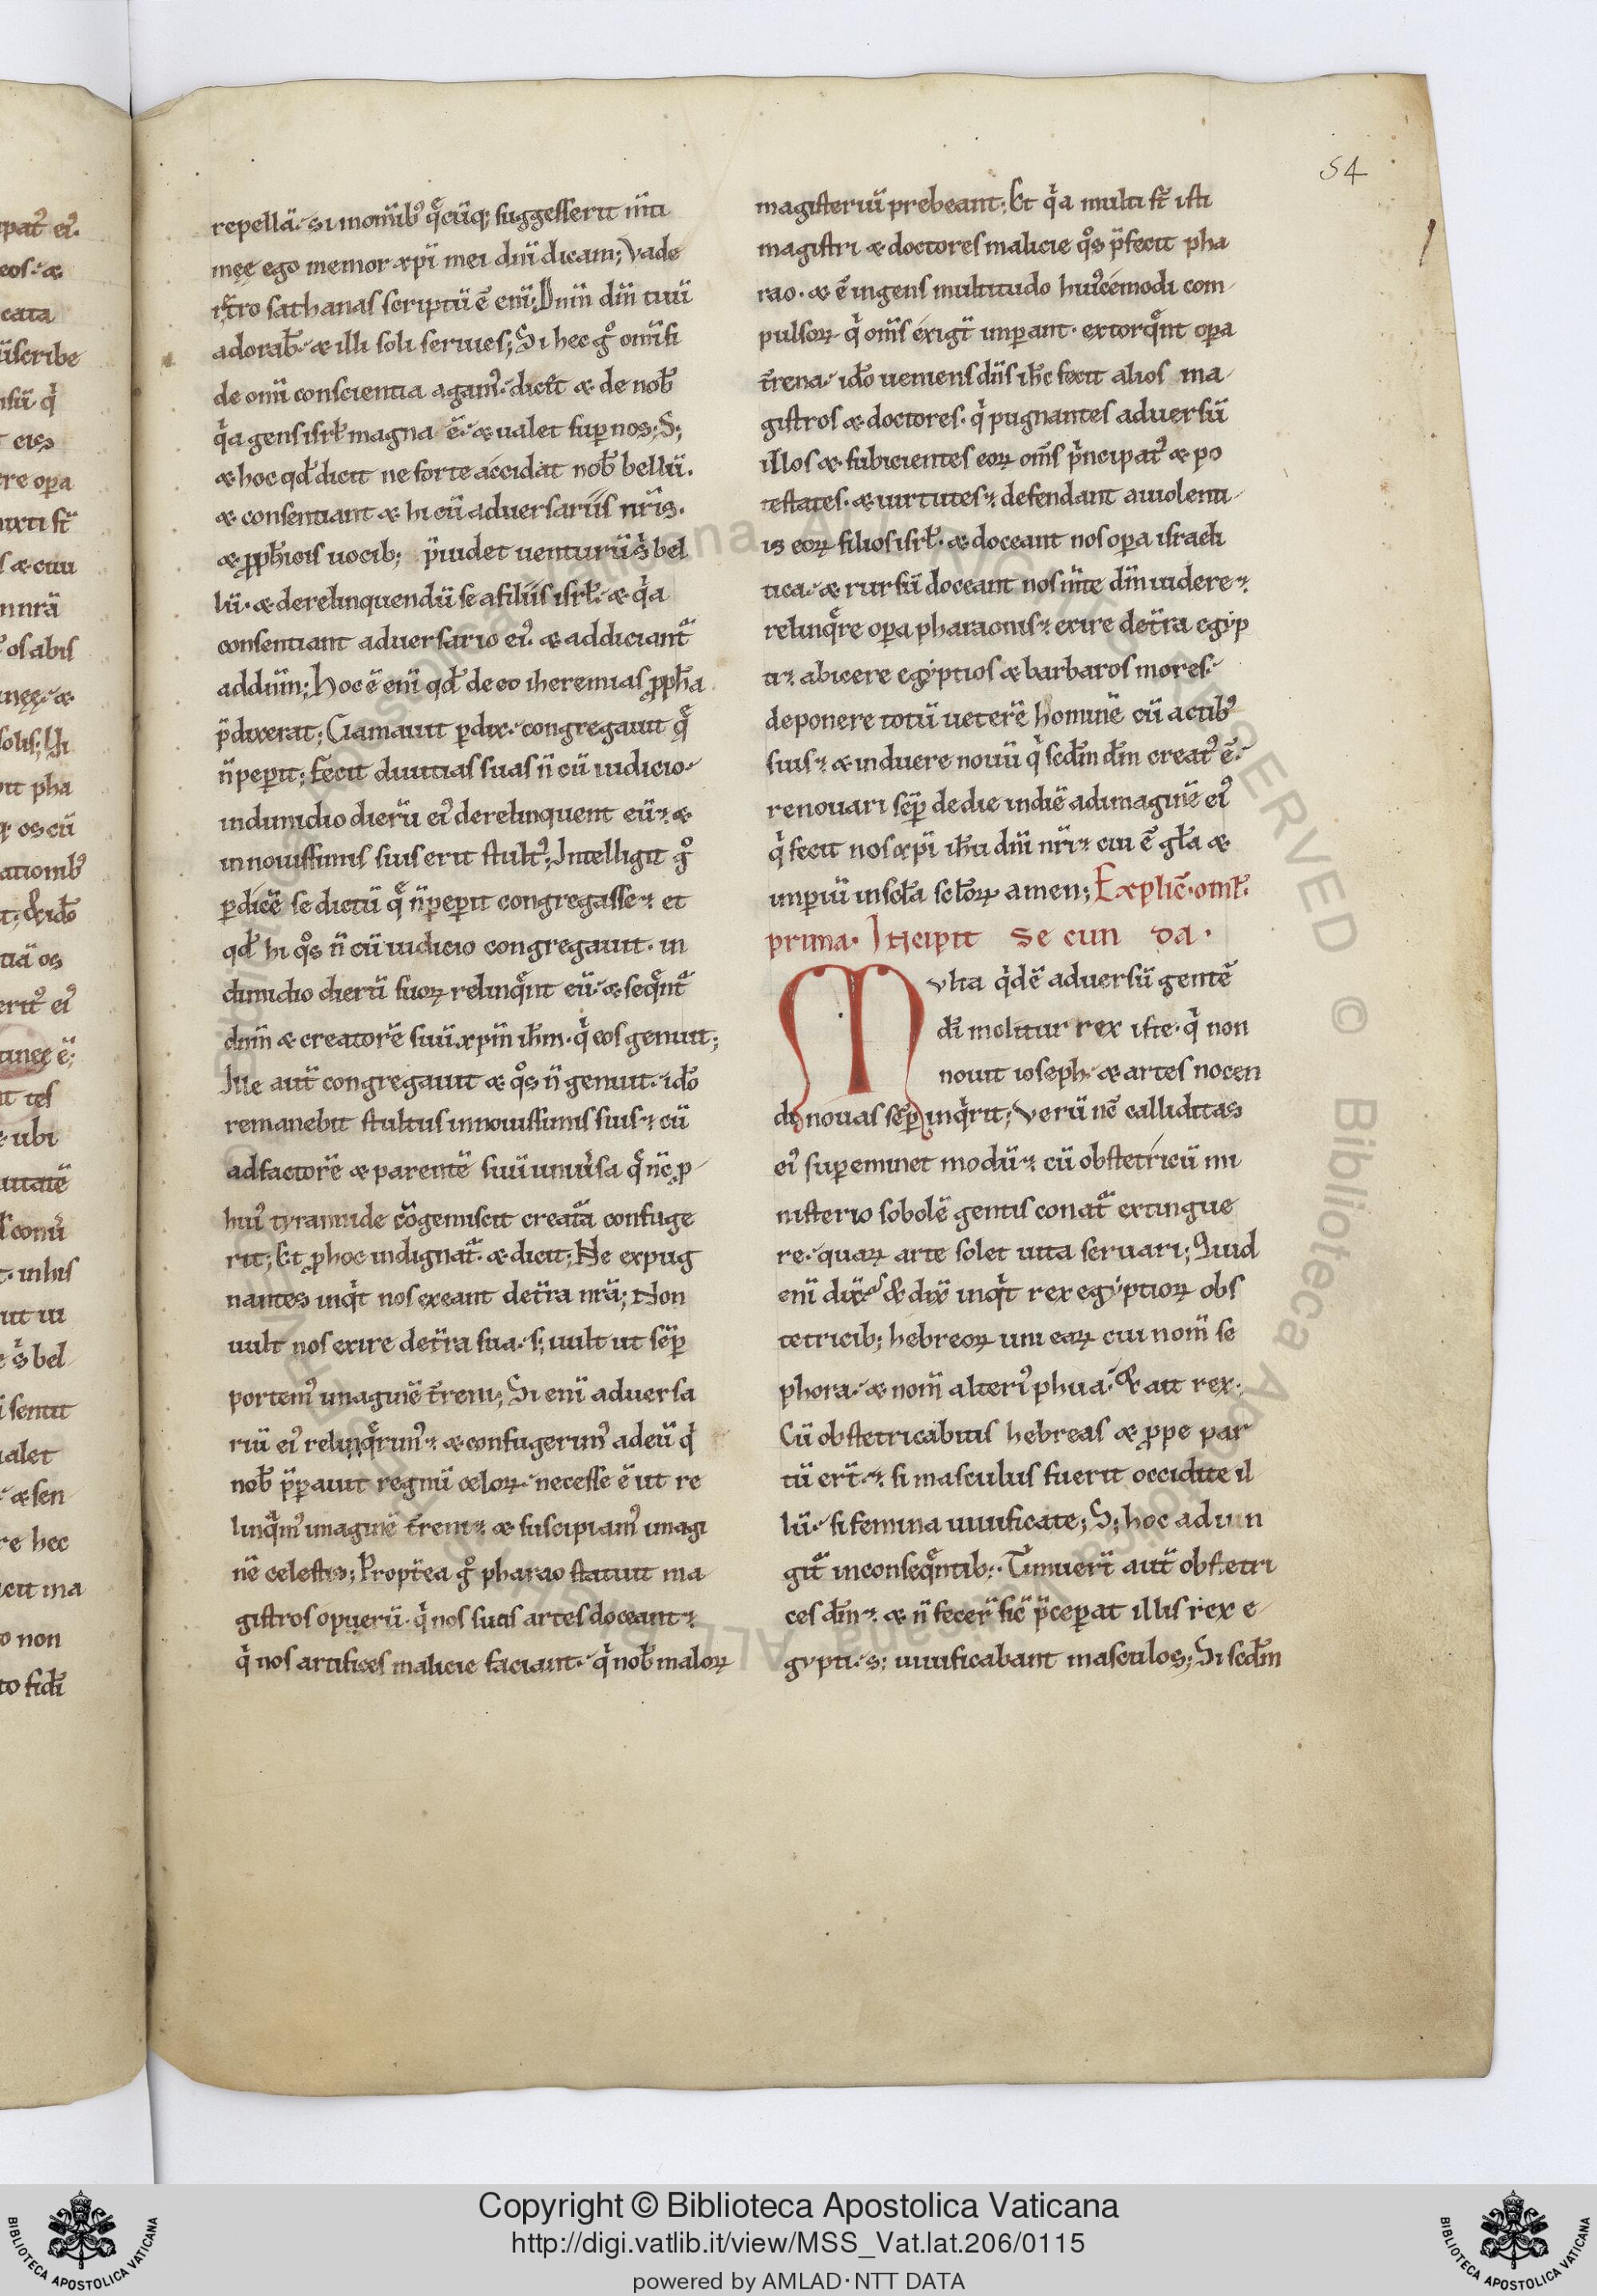 54
repellā. si monīib⁹ q̄cūq; suggesserit iīti
męę ego memor xp̄i mei dn̄i dicam; Vade
r̄tro sathanas scriptū ē eni; Dnm̄ dm̄ tuū
adorab̄. & illi soli seruies; Si hec g̊ omīsi
de omī conscientia agam⁹. dicit̄ & de nob̄
qͥa gens isrł magna ē. & ualet sup nos; S;
& hoc qd̄ dicit ne forte accidat nob̄ bellū.
& consentiant & hi cū aduersariis nr̄is.
& pph̄icis uocib; p̄uidet uenturū s̓ bel
lū. & derelinquendū se a filiis isrł. & qͥa
consentiant aduersario ei⁹. & addiciant᷑
ad dn̄m; Hoc ē eni qd̄ de eo iheremias pph̄a
p̄dixerat; Clamauit pdix. congregauit q̄
n̄ pepit; Fecit diuitias suas n̄ cū iudicio.
in dimidio dierū ei⁹ derelinquent eū. &
in nouissimis suis erit stult⁹; Intelligit g̊
pdicē se dictū q̄ n̄ pepit congregasse. et
qd̄ hi qͦs n̄ cū iudicio congregauit. in
dimidio dierū suoꝝ relinq̄nt eū. & seq̄nt᷑
dnm̄ & creatorē suū xpm̄ ih̄m. qͥ eos genuit;
Ille aut̄ congregauit & qͦs n̄ genuit. ido̅
remanebit stultus in nouissimis suis. cū
ad factorē & parentē suū uniu̓sa q̄ nc̄ p
hui⁹ tyrannide cōgemiscit creat̄a confuge
rit; Et p hoc indignat᷑. & dicit; Ne expug
nantes inqͥt nos exeant de t̄ra nrā; Non
uult nos exire de t̄ra sua. s; uult ut sep̄
portem⁹ imaginē t̄reni; Si eni aduersa
riū ei⁹ relinq̄rim⁹. & confugerim⁹ ad eū qͥ
nob̄ p̄parauit regnū cęloꝝ. necesse ē ut re
linq̄m⁹ imaginē t̄reni. & suscipiam⁹ imagi
nē celestis; Propt̄ea g̊ pharao statuit ma
gistros opuerū. qͥ nos suas artes doceant.
qͥ nos artifices malicie faciant. qͥ nob̄ maloꝝ
magisteriū prebeant; Et qͥa multi st̄ isti
magistri & doctores malicie qͦs p̄fecit pha
rao. & ē ingens multitudo hui⁹cemodi com
pulsoꝝ qͥ om̄s exigt̄ impant. extorq̄nt opa
t̄rena. ido̅ ueniens dn̄s ih̄c fecit alios ma
gistros & doctores. qͥ pugnantes aduersū
illos & subicientes eoꝝ om̄s pͥncipat⁹ & po
testates. & uirtutes. defendant a uiolenti
is eoꝝ filios isrł. & doceant nos opa israeli
tica. & rursū doceant nos m̄te dm̄ uidere.
relinq̄re opa pharaonis. exire de t̄ra egyp
ti. abicere egyptios & barbaros mores.
deponere totū ueterē hominē cū actib⁹
suis. & induere nouū qͥ scd̄m dm̄ creat⁹ ē.
renouari sep̄ de die in diē ad imaginē ei⁹
qͥ fecit nos xp̄i ih̄u dn̄i nr̄i. cui ē gl̄a &
impiū in sc̄la sc̄loꝝ amen; Explic̄. omł.
prima. Incipit Secunda.
Multa qͥdē aduersū gentē
dī molitur rex iste. qͥ non
nouit ioseph. & artes nocen
di nouas sep̄ inqͥrit; Verū nc̄ calliditas
ei⁹ supeminet modū. cū obstetricū mi
nisterio sobolē gentis conat᷑ extingue
re. quaꝝ arte solet uita seruari; Quid
eni dix̄. & dix̄ inqͥt rex egyptioꝝ obs
tetricib; hebreoꝝ uni eaꝝ cui nom̄ se
phora. & nom̄ alteri⁹ phua. & ait rex.
Cū obstetricabitis hebreas & ppe par
tū ert̄. si masculus fuerit occidite il
lū. si femina uiuificate; S; hoc adiun
git᷑ in conseq̄ntib; Timuert̄ aut̄ obstetri
ces dm̄. & n̄ fecer̄ sic̄ p̄ceperat illis rex e
gypti. s; uiuificabant masculos; Si scd̄m
Copyright © Biblioteca Apostolica Vaticana
http://digi.vatlib.it/view/MSS_Vat.lat.206/0115
powered by AMLAD·NTT DATA